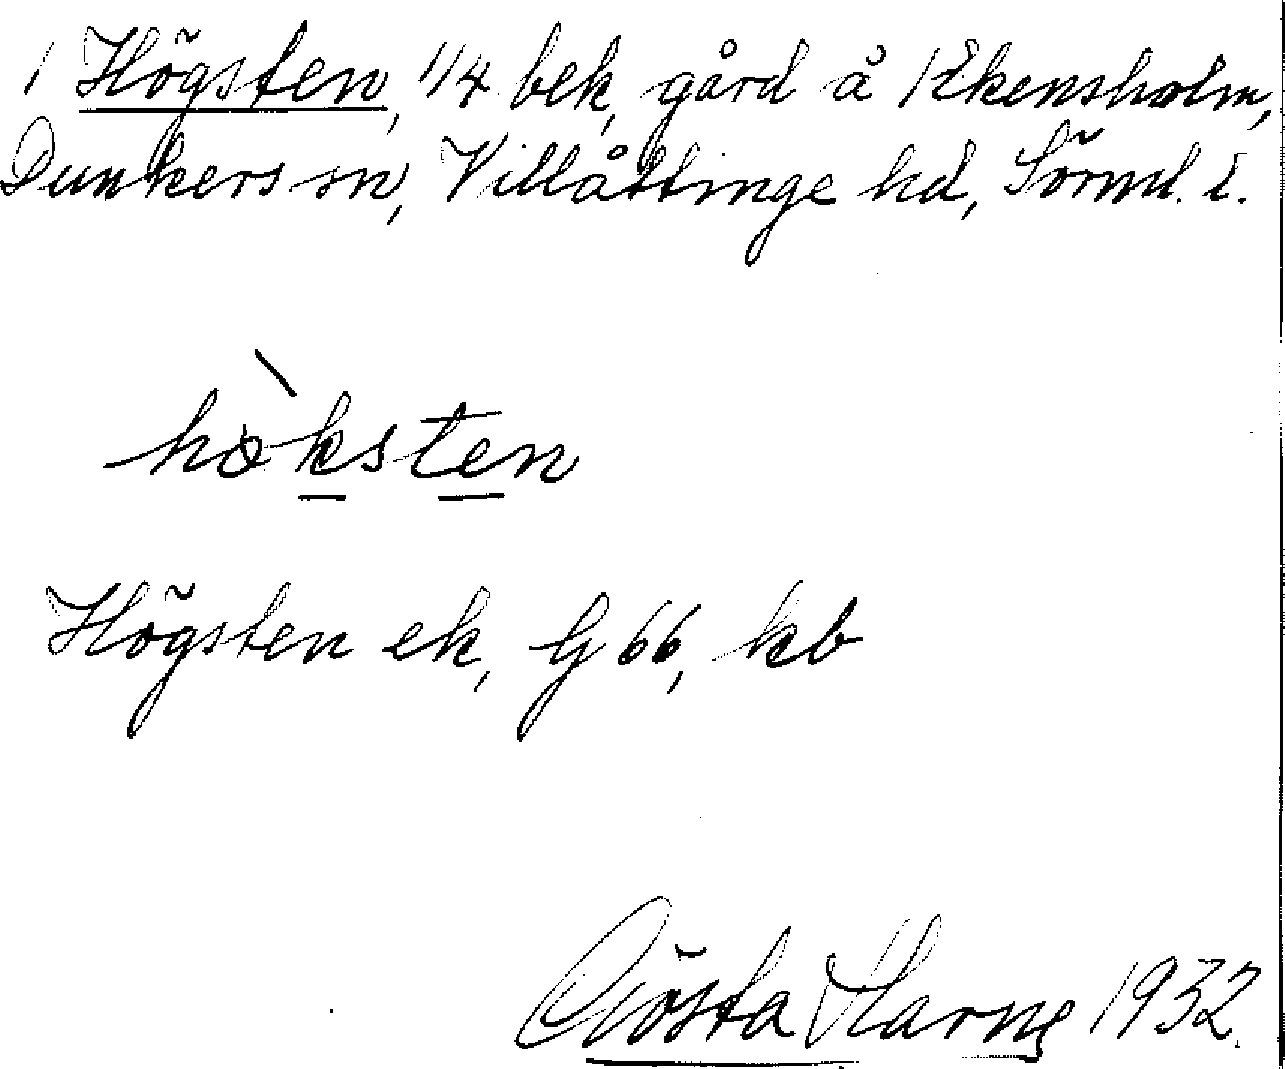 1 Högsten, 1/4 bek, gård å Ekensholm,
Dunkers sn, Villåttinge hd, Sörml. l.
hòksten
Högsten ek, G 66, kb
Gösta 1932.